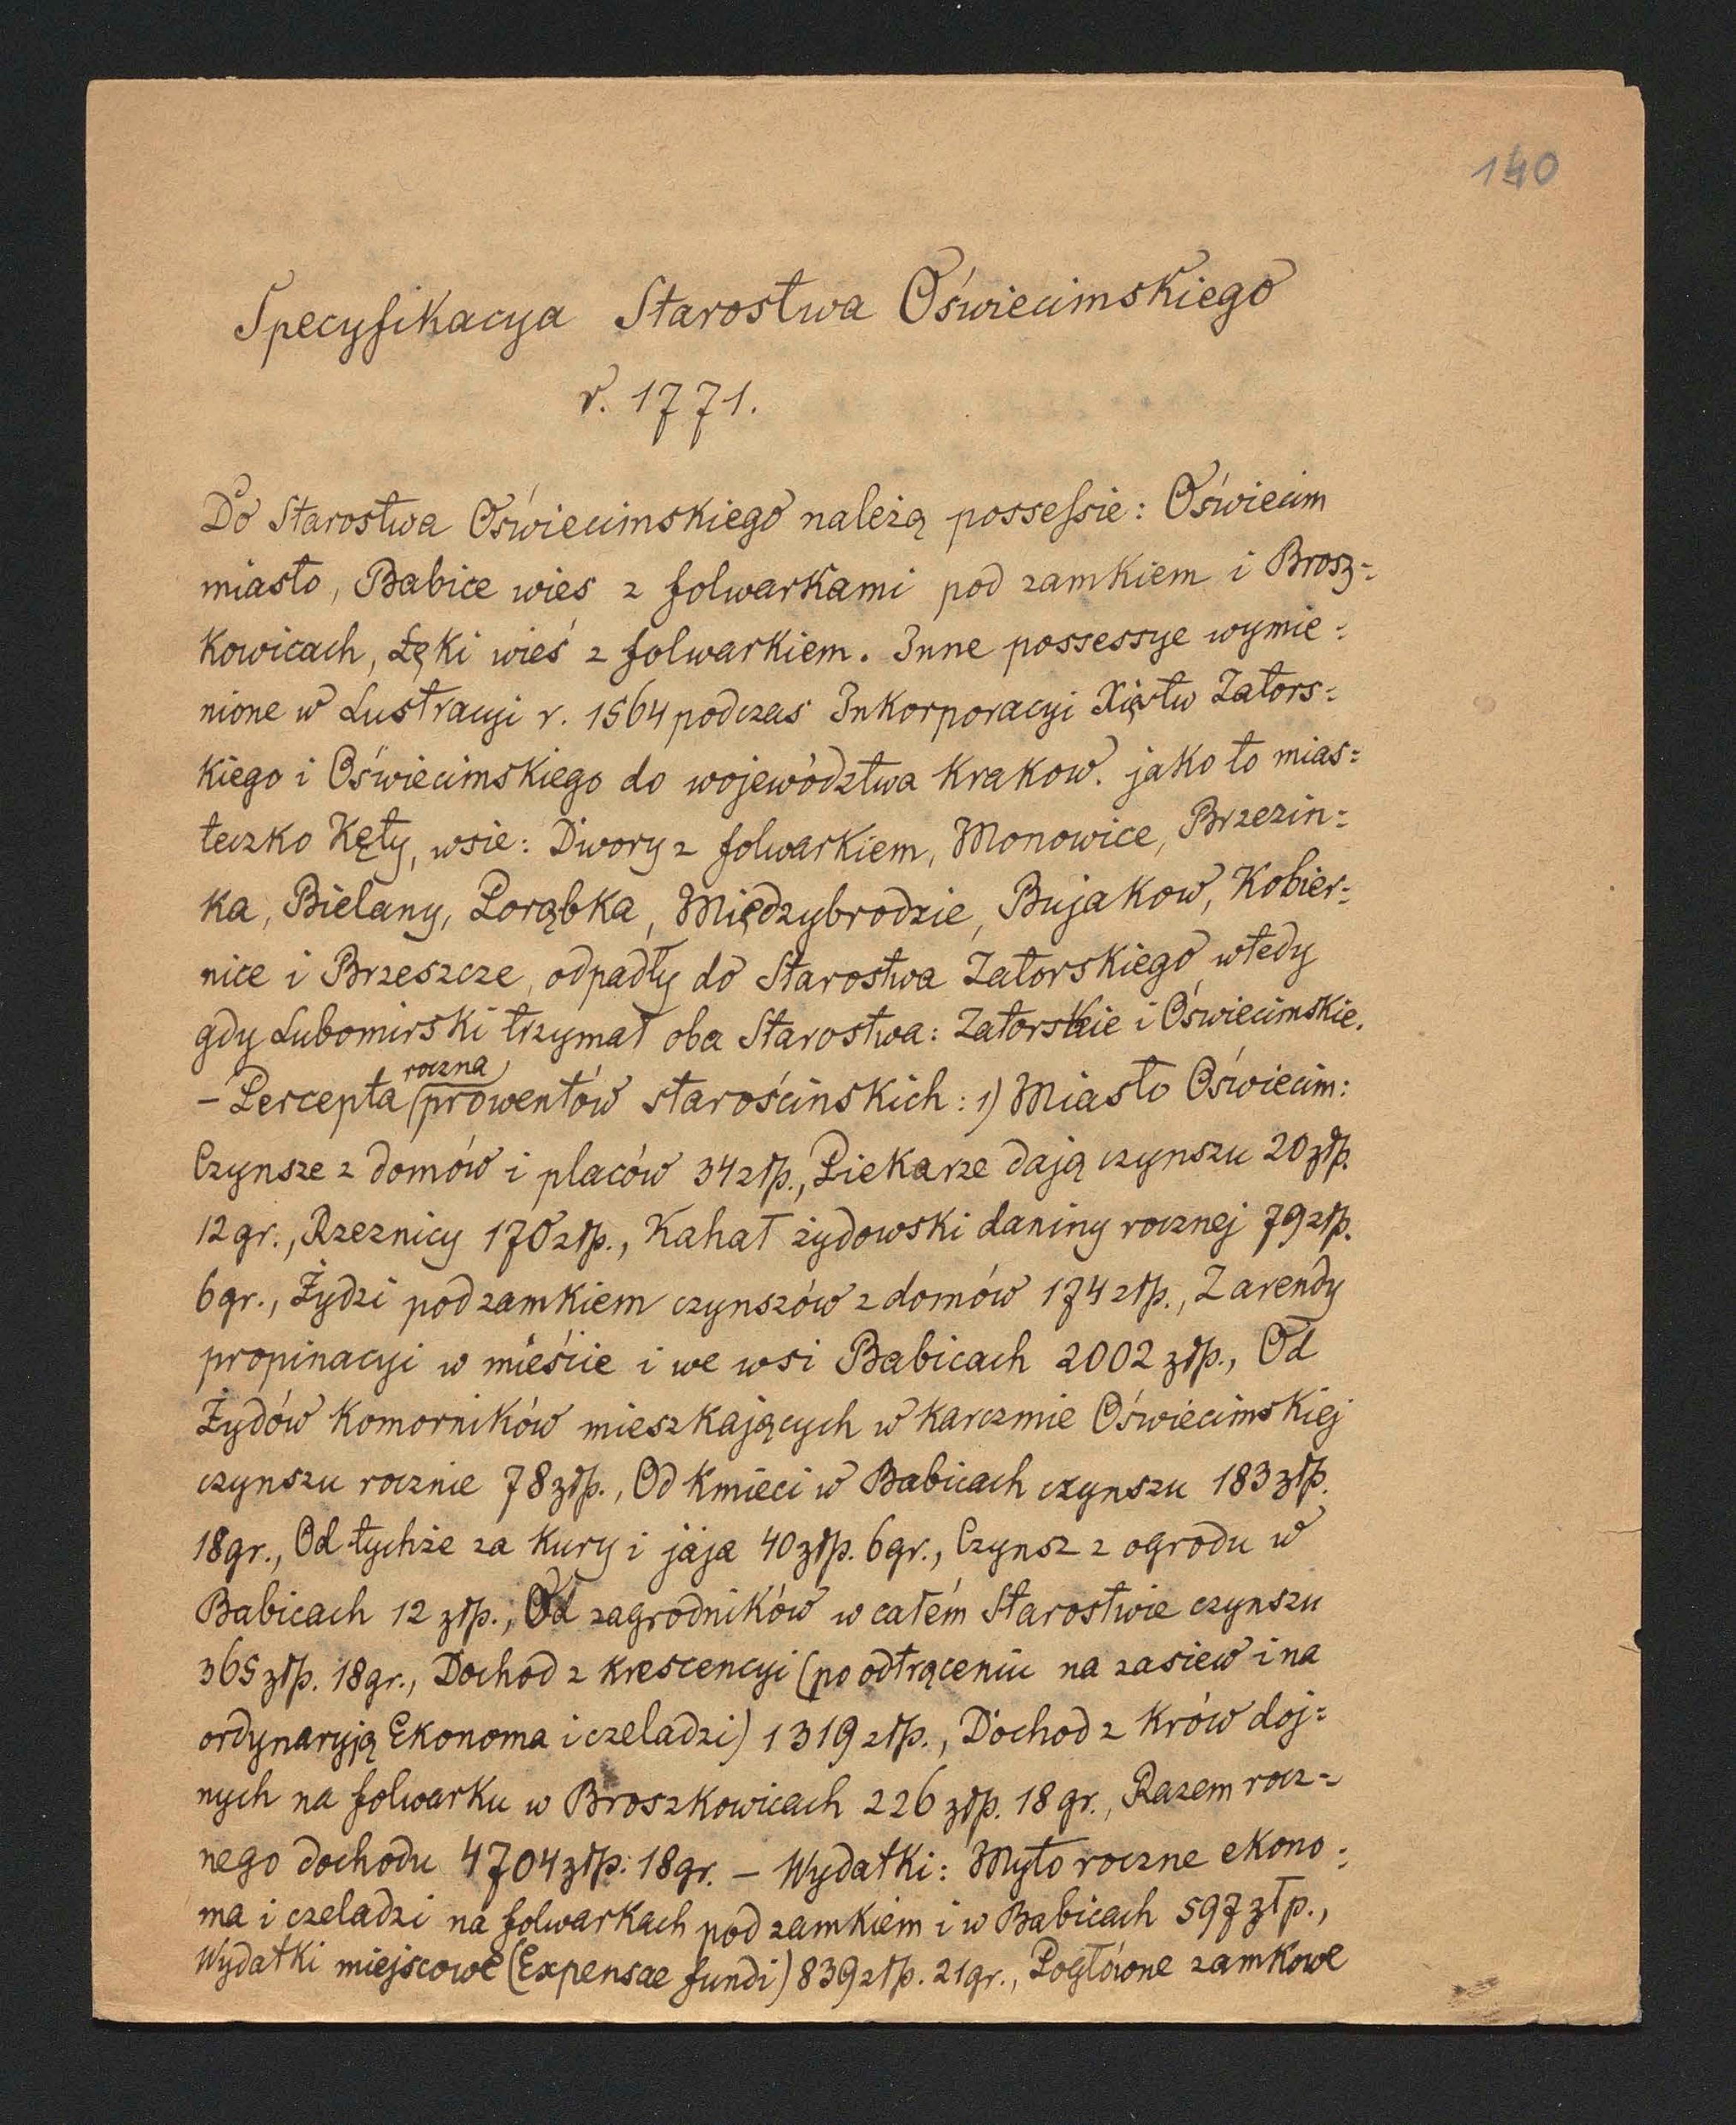 140
Specyfikacya Starostwa Oświecimskiego
r. 1771.
Do Starostwa Oświecimskiego należą possessie: Oświecim
miasto, Babice wies z folwarkami pod zamkiem i Brosz=
kowicach, Łęki wieś z folwarkiem. Inne possessye wymie=
nione w Lustracyi r. 1564 podczas Inkorporacyi Xięstw Zators=
kiego i Oświecimskiego do województwa Krakow. jako to mias=
teczko Kęty, wsie: Dwory z folwarkiem, Monowice, Brzezin=
ka, Bielany, Porąbka, Międzybrodzie, Bujakow, Kobier=
nice i Brzeszcze, odpadły do Starostwa Zatorskiego wtedy
gdy Lubomirski trzymał oba Starostwa: Zatorskie i Oświecimskie.
roczna
– Percepta prowentów starościnskich: 1) Miasto Oświecim:
Czynsze z domów i placów 34 złp., Piekarze dają czynszu 20 złp.
12 gr., Rzeznicy 170 złp., Kahał żydowski daniny rocznej 79 złp.
6 gr., Żydzi pod zamkiem czynszów z domów 174 złp., Z arendy
propinacyi w mieście i we wsi Babicach 2002 złp., Od
Żydów komorników mieszkających w karczmie Oświecimskiej
czynszu rocznie 78 złp., Od kmieci w Babicach czynszu 183 złp.
18 gr., Od tychże za kury i jaja 40 złp. 6 gr., Czynsz z ogrodu w
Babicach 12 złp., Od zagrodników w całém Starostwie czynszu
365 złp. 18 gr., Dochod z krescencyi (po odtrąceniu na zasiew i na
ordynaryją Ekonoma i czeladzi) 1319 złp., Dochod z krów doj=
nych na folwarku w Broszkowicach 226 złp. 18 gr., Razem rocz=
nego dochodu 4704 złp. 18 gr. – Wydatki: Myto roczne ekono=
ma i czeladzi na folwarkach pod zamkiem i w Babicach 597 złp.,
Wydatki miejscowe (Expensae fundi) 839 złp. 21 gr., Pogłówne zamkowe